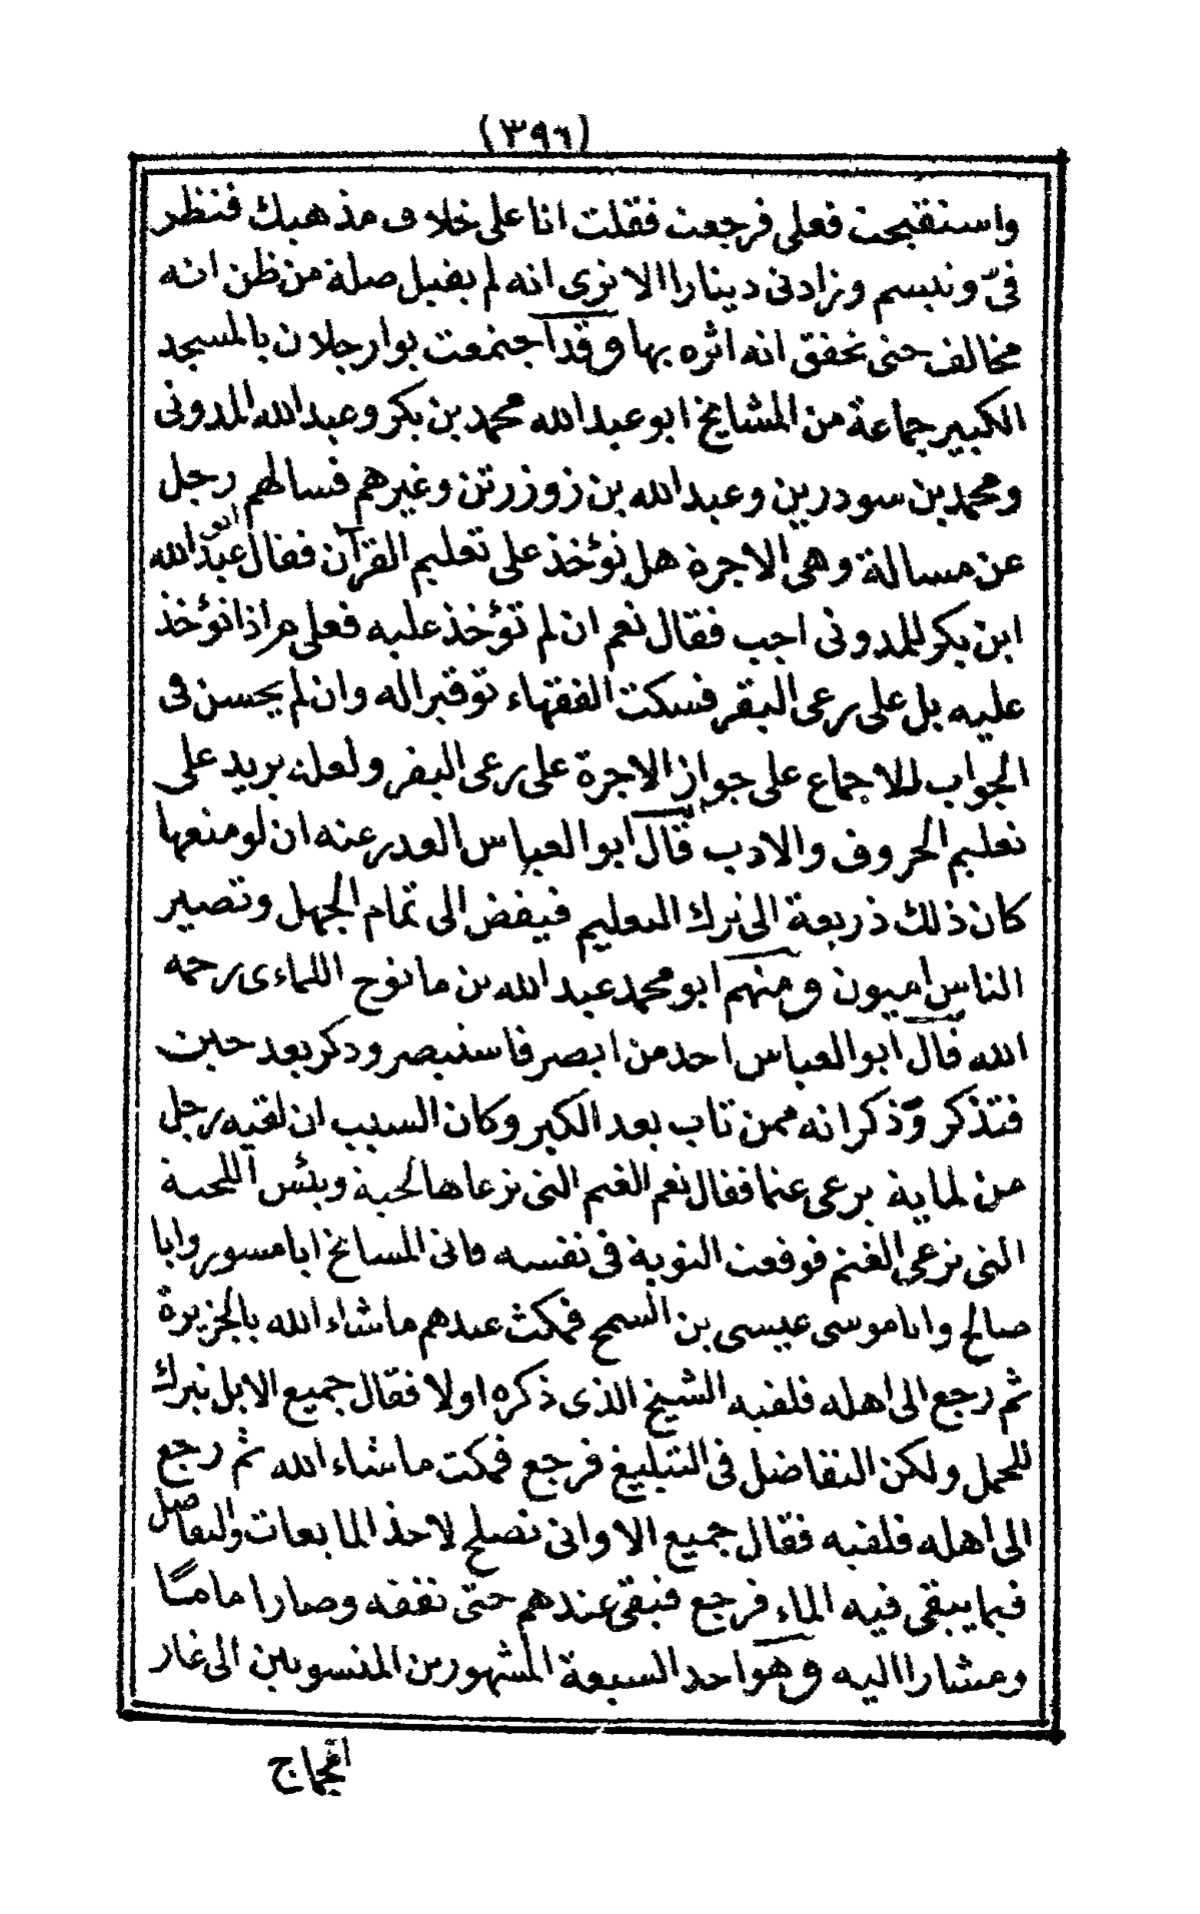 (٣٩٦)
واستقبحت فعلى فرجعت فقلت انا على خلاف مذهبك فنظر
فىّ وتبسم وزادنى دينارا الا ترى انه لم يفبل صلة من ظن انه
مخالف حتى تحقق انه اثره بها وقد اجتمعت بوارجلان بالمسجد
الكبير جماعة من المشايخ ابو عبد الله محمد بن بكر وعبد الله المدونى
ومحمد بن سودرين وعبد الله بن زوزرتن وغيرهم فسالهم رجل
عن مسالة وهى الاجرة هل تؤخذ على تعليم القرآن فقال ابو عبد الله
ابن بكر للمدونى اجب فقال نعم ان لم تؤخذ عليه فعلى م اذا تؤخذ
عليه بل على رعى البقر فسكت الفقهاء توقيرا له وان لم يحسن فى
الجواب للاجماع على جواز الاجرة على رعى البقر ولعله يريد على
تعليم الحروف والادب قال ابو العباس العدر عنه ان لو منعها
كان ذلك ذريعة الى ترك التعليم فيفض الى تمام الجهل وتصير
الناس اميون ومنهم ابو محمد عبد الله بن مانوج اللماءى رحمه
الله قال ابو العباس احد من ابصر فاستبصر وذكر بعد حين
فتذكر وّذكر انه ممن تاب بعد الكبر وكان السبب ان لقيه رجل
من لماية يرعى غنما فقال نعم الغنم التى ترعاها لحية وبئس اللحية
التى ترعى الغنم فوقعت التوبة فى نفسه فاتى المسايخ ابا مسور وابا
صالح وابا موسى عيسى بن السمح فمكث عندهم ماشاء الله بالجزيرة
ثم رجع الى اهله فلقيه الشيخ الذى ذكره اولا فقال جميع الابل تبرك
للحمل ولكن التفاضل فى التبليغ فرجع فمكث ماشاء الله ثم رجع
الى اهله فلقيه فقال جميع الاوانى تصلح لاخذ المايعات والتفاضل
فيما يبقى فيه الماء فرجع فبقى عندهم حتى تفقه وصار اماما
ومشارا اليه وهو احد السبعة المشهورين المنسوبين الى غار
امجماج